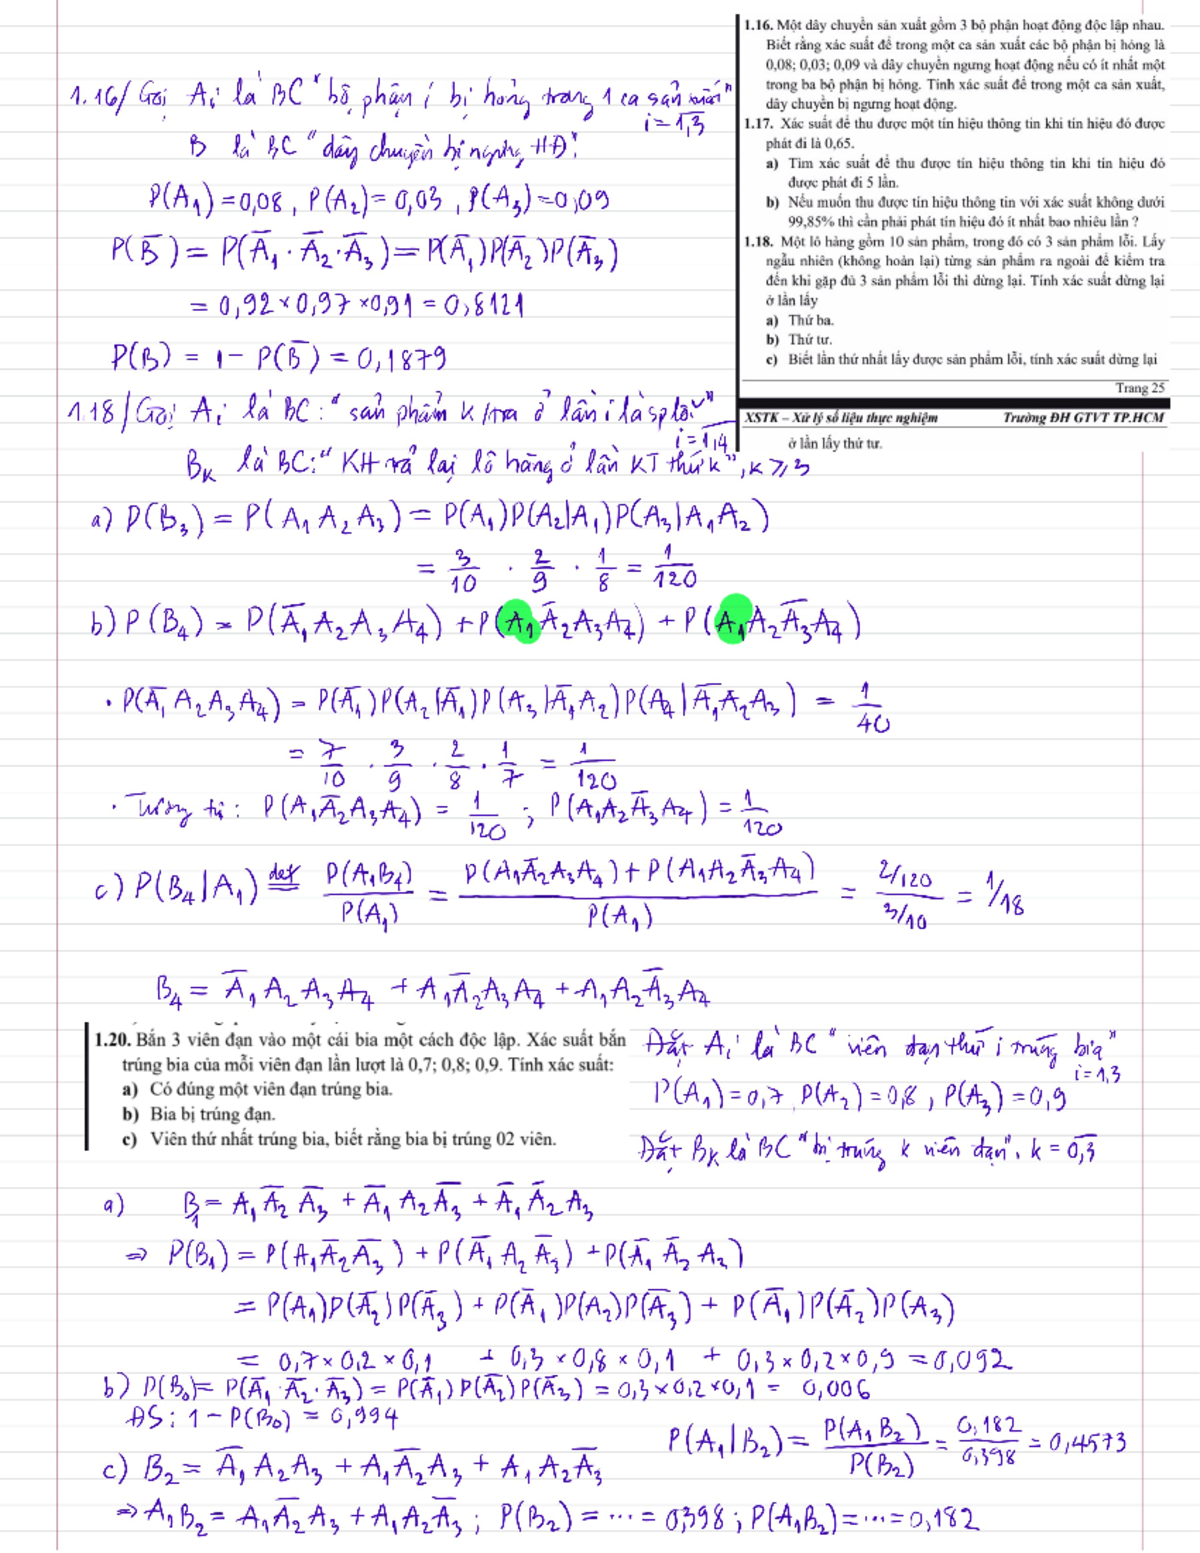 1.16. Một dây chuyền sản xuất gồm 3 bộ phận hoạt động độc lập nhau.
Biết rằng xác suất để trong một ca sản xuất các bộ phận bị hỏng là
0,08; 0,03; 0,09 và dây chuyền ngưng hoạt động nếu có ít nhất một
trong ba bộ phận bị hỏng. Tính xác suất để trong một ca sản xuất,
dây chuyền bị ngưng hoạt động.
1.17. Xác suất để thu được một tín hiệu thông tin khi tín hiệu đó được
phát đi là 0,65.
a) Tìm xác suất để thu được tín hiệu thông tin khi tín hiệu đó
được phát đi 5 lần.
b) Nếu muốn thu được tín hiệu thông tin với xác suất không dưới
99,85% thì cần phải phát tín hiệu đó ít nhất bao nhiêu lần ?
1.18. Một lô hàng gồm 10 sản phẩm, trong đó có 3 sản phẩm lỗi. Lấy
ngẫu nhiên (không hoàn lại) từng sản phẩm ra ngoài để kiểm tra
đến khi gặp đủ 3 sản phẩm lỗi thì dừng lại. Tính xác suất dừng lại
ở lần lấy
a) Thứ ba.
b) Thứ tư.
c) Biết lần thứ nhất lấy được sản phẩm lỗi, tính xác suất dừng lại
Trang 25
XSTK – Xử lý số liệu thực nghiệm Trường ĐH GTVT TP.HCM
ở lần lấy thứ tư.
1.16/ Gọi Ai là BC "bộ phận i bị hỏng trong 1 ca sản xuất"
i = 1,3
B là BC "dây chuyền bị ngưng HĐ"
P(A₁) = 0,08 , P(A₂) = 0,03 , P(A₃) = 0,09
P(B̅) = P(A̅₁ · A̅₂ · A̅₃) = P(A̅₁)P(A̅₂)P(A̅₃)
= 0,92 × 0,97 × 0,91 = 0,8121
P(B) = 1 − P(B̅) = 0,1879
1.18/ Gọi Ai là BC: "sản phẩm k/tra ở lần i là sp lỗi"
i = 1,4
Bₖ là BC: "KH trả lại lô hàng ở lần KT thứ k", k ⩾ 3
a) P(B₃) = P(A₁A₂A₃) = P(A₁)P(A₂|A₁)P(A₃|A₁A₂)
= 3/10 · 2/9 · 1/8 = 1/120
b) P(B₄) = P(A̅₁A₂A₃A₄) + P(A₁A̅₂A₃A₄) + P(A₁A₂A̅₃A₄)
· P(A̅₁A₂A₃A₄) = P(A̅₁)P(A₂|A̅₁)P(A₃|A̅₁A₂)P(A₄|A̅₁A₂A₃) = 1/40
= 7/10 · 3/9 · 2/8 · 1/7 = 1/120
· Tương tự : P(A₁A̅₂A₃A₄) = 1/120 ; P(A₁A₂A̅₃A₄) = 1/120
c) P(B₄|A₁) def= P(A₁B₄)/P(A₁) = (P(A₁A̅₂A₃A₄) + P(A₁A₂A̅₃A₄))/P(A₁) = (2/120)/(3/10) = 1/18
B₄ = A̅₁A₂A₃A₄ + A₁A̅₂A₃A₄ + A₁A₂A̅₃A₄
1.20. Bắn 3 viên đạn vào một cái bia một cách độc lập. Xác suất bắn
trúng bia của mỗi viên đạn lần lượt là 0,7; 0,8; 0,9. Tính xác suất:
a) Có đúng một viên đạn trúng bia.
b) Bia bị trúng đạn.
c) Viên thứ nhất trúng bia, biết rằng bia bị trúng 02 viên.
Đặt Ai là BC "viên đạn thứ i trúng bia"
i = 1,3
P(A₁) = 0,7 , P(A₂) = 0,8 , P(A₃) = 0,9
Đặt Bₖ là BC "bị trúng k viên đạn", k = 0,3
a) B₁ = A₁A̅₂A̅₃ + A̅₁A₂A̅₃ + A̅₁A̅₂A₃
⇒ P(B₁) = P(A₁A̅₂A̅₃) + P(A̅₁A₂A̅₃) + P(A̅₁A̅₂A₃)
= P(A₁)P(A̅₂)P(A̅₃) + P(A̅₁)P(A₂)P(A̅₃) + P(A̅₁)P(A̅₂)P(A₃)
= 0,7 × 0,2 × 0,1 + 0,3 × 0,8 × 0,1 + 0,3 × 0,2 × 0,9 = 0,092
b) P(B₀) = P(A̅₁ · A̅₂ · A̅₃) = P(A̅₁)P(A̅₂)P(A̅₃) = 0,3 × 0,2 × 0,1 = 0,006
ĐS : 1 − P(B₀) = 0,994
c) B₂ = A̅₁A₂A₃ + A₁A̅₂A₃ + A₁A₂A̅₃
P(A₁|B₂) = P(A₁B₂)/P(B₂) = 0,182/0,398 = 0,4573
⇒ A₁B₂ = A₁A̅₂A₃ + A₁A₂A̅₃ ; P(B₂) = ... = 0,398 ; P(A₁B₂) = ... = 0,182